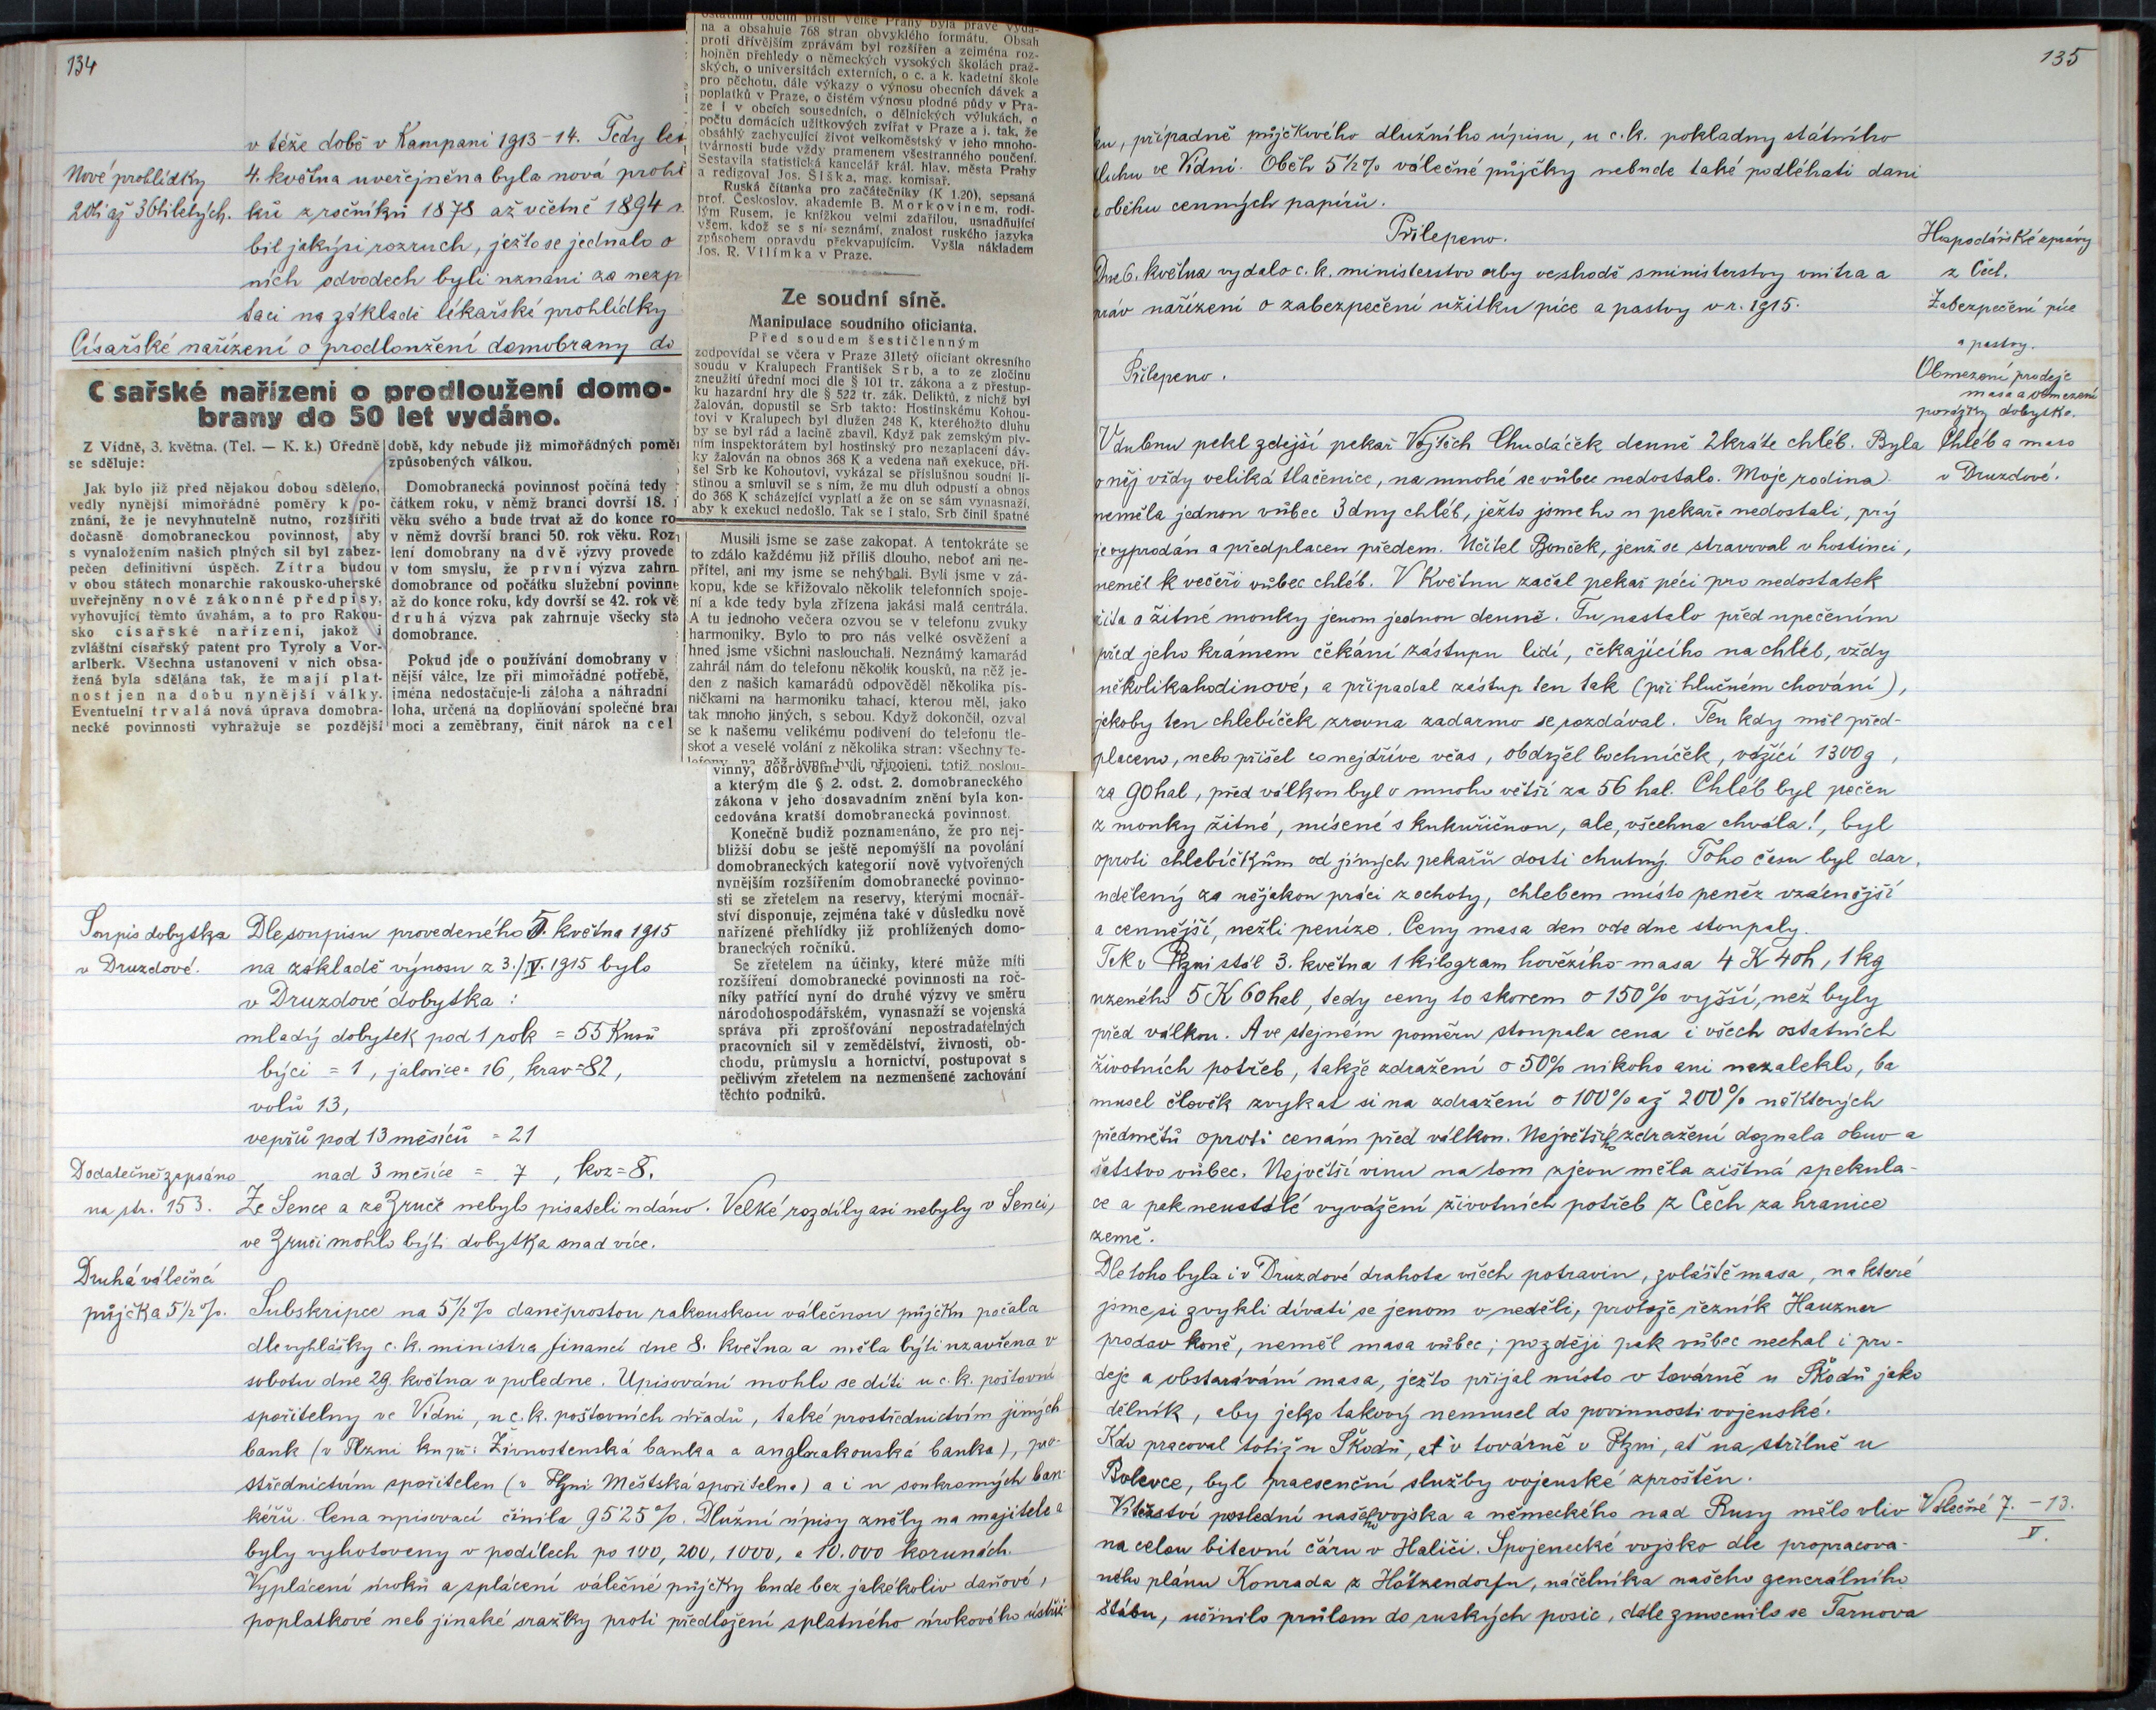 134
v téže době v Kampani 1913–14. Tedy let
Nové prohlídky
20ti až 36tiletých.
4. května uveřejněna byla nová prohl
ků z ročníků 1878 až včetně 1894
bil jakýsi rozruch, ježto se jednalo o
ních odvodech byli uznáni za nezp
taci na základě lékařské prohlídky
Císařské nařízení o prodloužení domobrany do
C sařské nařízení o prodloužení domo-
brany do 50 let vydáno.
Z Vídně, 3. května. (Tel. — K. k.) Úředně
se sděluje:
Jak bylo již před nějakou dobou sděleno,
vedly nynější mimořádné poměry k po-
znání, že je nevyhnutelně nutno, rozšířiti
dočasně domobraneckou povinnost, aby
s vynaložením našich plných sil byl zabez-
pečen definitivní úspěch. Zítra budou
v obou státech monarchie rakousko-uherské
uveřejněny nové zákonné předpisy,
vyhovující těmto úvahám, a to pro Rakou-
sko císařské nařízení, jakož i
zvláštní císařský patent pro Tyroly a Vor-
arlberk. Všechna ustanovení v nich obsa-
žená byla sdělána tak, že mají plat-
nost jen na dobu nynější války.
Eventuelní trvalá nová úprava domobra-
necké povinnosti vyhražuje se pozdější
době, kdy nebude již mimořádných pomě
způsobených válkou.
Domobranecká povinnost počíná tedy
čátkem roku, v němž branci dovrší 18.
věku svého a bude trvat až do konce ro
v němž dovrší branci 50. rok věku. Roz
lení domobrany na dvě výzvy provede
v tom smyslu, že první výzva zahrn
domobrance od počátku služební povinn
až do konce roku, kdy dovrší se 42. rok vě
druhá výzva pak zahrnuje všecky sta
domobrance.
Pokud jde o používání domobrany v
nější válce, lze při mimořádné potřebě,
jména nedostačuje-li záloha a náhradní
loha, určená na doplňování společné bra
moci a zeměbrany, činit nárok na cel
ostatním obcím příští Velké Prahy byla právě vydá-
na a obsahuje 768 stran obvyklého formátu. Obsah
proti dřívějším zprávám byl rozšířen a zejména roz-
hojněn přehledy o německých vysokých školách praž-
ských, o universitách externích, o c. a k. kadetní škole
pro pěchotu, dále výkazy o výnosu obecních dávek a
poplatků v Praze, o čistém výnosu plodné půdy v Pra-
ze i v obcích sousedních, o dělnických výlukách, o
počtu domácích užitkových zvířat v Praze a j. tak, že
obsáhlý zachycující život velkoměstský v jeho mnoho-
tvárnosti bude vždy pramenem všestranného poučení.
Sestavila statistická kancelář král. hlav. města Prahy
a redigoval Jos. Šiška, mag. komisař.
Ruská čítanka pro začátečníky (K 1.20), sepsaná
prof. Českoslov. akademie B. Morkovinem, rodi-
lým Rusem, je knížkou velmi zdařilou, usnadňující
všem, kdož se s ní seznámí, znalost ruského jazyka
způsobem opravdu překvapujícím. Vyšla nákladem
Jos. R. Vilímka v Praze.
Ze soudní síně.
Manipulace soudního oficianta.
Před soudem šestičlenným
zodpovídal se včera v Praze 31letý oficiant okresního
soudu v Kralupech František Srb, a to ze zločinu
zneužití úřední moci dle § 101 tr. zákona a z přestup-
ku hazardní hry dle § 522 tr. zák. Deliktů, z nichž byl
žalován, dopustil se Srb takto: Hostinskému Kohou-
tovi v Kralupech byl dlužen 248 K, kteréhožto dluhu
by se byl rád a lacině zbavil. Když pak zemským piv-
ním inspektorátem byl hostinský pro nezaplacení dáv-
ky žalován na obnos 368 K a vedena naň exekuce, při-
šel Srb ke Kohoutovi, vykázal se příslušnou soudní li-
stinou a smluvil se s ním, že mu dluh odpustí a obnos
do 368 K scházející vyplatí a že on se sám vynasnaží,
aby k exekuci nedošlo. Tak se i stalo, Srb činil špatné
Musili jsme se zase zakopat. A tentokráte se
to zdálo každému již příliš dlouho, neboť ani ne-
přítel, ani my jsme se nehýbali. Byli jsme v zá-
kopu, kde se křižovalo několik telefonních spoje-
ní a kde tedy byla zřízena jakási malá centrála.
A tu jednoho večera ozvou se v telefonu zvuky
harmoniky. Bylo to pro nás velké osvěžení a
hned jsme všichni naslouchali. Neznámý kamarád
zahrál nám do telefonu několik kousků, na něž je-
den z našich kamarádů odpověděl několika pís-
ničkami na harmoniku tahací, kterou měl, jako
tak mnoho jiných, s sebou. Když dokončil, ozval
se k našemu velikému podivení do telefonu tle-
skot a veselé volání z několika stran: všechny te-
lefony, na něž jsme byli připojeni, totiž poslou-
vinny, dobrovolně do
a kterým dle § 2. odst. 2. domobraneckého
zákona v jeho dosavadním znění byla kon-
cedována kratší domobranecká povinnost.
Konečně budiž poznamenáno, že pro nej-
bližší dobu se ještě nepomýšlí na povolání
domobraneckých kategorií nově vytvořených
nynějším rozšířením domobranecké povinno-
sti se zřetelem na reservy, kterými mocnář-
ství disponuje, zejména také v důsledku nově
nařízené přehlídky již prohlížených domo-
braneckých ročníků.
Se zřetelem na účinky, které může míti
rozšíření domobranecké povinnosti na roč-
níky patřící nyní do druhé výzvy ve směru
národohospodářském, vynasnaží se vojenská
správa při zprošťování nepostradatelných
pracovních sil v zemědělství, živnosti, ob-
chodu, průmyslu a hornictví, postupovat s
pečlivým zřetelem na nezmenšené zachování
těchto podniků.
Soupis dobytka
v Druzdové.
Dle soupisu provedeného 5. května 1915
na základě výnosu z 3./V. 1915 bylo
v Druzdové dobytka:
mladý dobytek pod 1 rok = 55 kusů
býci = 1, jalovice = 16, krav = 82,
volů 13,
vepřů pod 13 měsíců = 21
nad 3 měsíce = 7, koz = 8.
Dodatečně zapsáno
na str. 153.
Ze Sence a ze Zruče nebylo pisateli udáno. Velké rozdíly asi nebyly v Senci,
ve Zruči mohlo býti dobytka snad více.
Druhá válečná
půjčka 5½%.
Subskripce na 5½% daněprostou rakouskou válečnou půjčku počala
dle vyhlášky c. k. ministra financí dne 8. května a měla býti uzavřena v
sobotu dne 29. května v poledne. Upisování mohlo se díti u c. k. poštovní
spořitelny ve Vídni, u c. k. poštovních úřadů, také prostřednictvím jiných
bank (v Plzni ku př. Živnostenská banka a anglorakouská banka), pro-
střednictvím spořitelen (v Plzni Městská spořitelna) a i u soukromých ban-
kéřů. Cena upisovací činila 95·25%. Dlužní úpisy zněly na majitele a
byly vyhotoveny v podílech po 100, 200, 1000, a 10.000 korunách.
Vyplácení úroků a splácení válečné půjčky bude bez jakékoliv daňové,
poplatkové neb jinaké srážky proti předložení splatného úrokového ústřiž-
135
ku, případně půjčkového dlužního úpisu, u c. k. pokladny státního
dluhu ve Vídni. Oběh 5½% válečné půjčky nebude také podléhati dani
z oběhu cenných papírů.
Přilepeno.
Hospodářské zprávy
z Čech.
Dne 6. května vydalo c. k. ministerstvo orby ve shodě s ministerstvy vnitra a
práv nařízení o zabezpečení užitku píce a pastvy v r. 1915.
Zabezpečení píce
a pastvy.
Přilepeno.
Obmezení prodeje
masa a obmezení
porážky dobytka.
V dubnu pekl zdejší pekař Vojtěch Chudáček denně 2kráte chléb. Byla
o něj vždy veliká tlačenice, na mnohé se vůbec nedostalo. Moje rodina
Chléb a maso
v Druzdové.
neměla jednou vůbec 3 dny chléb, ježto jsme ho u pekaře nedostali, prý
je vyprodán a předplacen předem. Učitel Bouček, jenž se stravoval v hostinci,
neměl k večeři vůbec chléb. V květnu začal pekař péci pro nedostatek
žita a žitné mouky jenom jednou denně. Tu nastalo před upečením
před jeho krámem čekání zástupu lidí, čekajícího na chléb, vždy
několikahodinové, a připadal zástup ten tak (při hlučném chování),
jakoby ten chlebíček zrovna zadarmo se rozdával. Ten kdy měl před-
placeno, nebo přišel co nejdříve včas, obdržel bochníček, vážící 1300 g,
za 90 hal, před válkou byl o mnoho větší za 56 hal. Chléb byl pečen
z mouky žitné, míšené s kukuřičnou, ale, všechna chvála!, byl
oproti chlebíčkům od jiných pekařů dosti chutný. Toho času byl dar,
udělený za nějakou práci z ochoty, chlebem místo peněz vzácnější
a cennější, nežli peníze. Ceny masa den ode dne stoupaly.
Tak v Plzni stál 3. května 1 kilogram hovězího masa 4 K 40h, 1 kg
uzeného 5 K 60 hal, tedy ceny to skorem o 150% vyšší, než byly
před válkou. A ve stejném poměru stoupala cena i všech ostatních
životních potřeb, takže zdražení o 50% nikoho ani nezaleklo, ba
musel člověk zvykat si na zdražení o 100% až 200% některých
předmětů oproti cenám před válkou. Největšího zdražení doznala obuv a
šatstvo vůbec. Největší vinu na tom zjevu měla zištná spekula-
ce a pak neustálé vyvážení životních potřeb z Čech za hranice
země.
Dle toho byla i v Druzdové drahota všech potravin, zvláště masa, na které
jsme si zvykli dívati se jenom v neděli, protože řezník Hauzner
prodav koně, neměl masa vůbec; později pak vůbec nechal i pro-
deje a obstarávání masa, ježto přijal místo v továrně u Škodů jako
dělník, aby jako takový nemusel do povinnosti vojenské.
Kdo pracoval totiž u Škodů, ať v továrně v Plzni, ať na střílně u
Bolevce, byl praesenční služby vojenské zproštěn.
Vítězství poslední našeho vojska a německého nad Rusy mělo vliv
Válečné 7. – 13.
V.
na celou bitevní čáru v Haliči. Spojenecké vojsko dle propracova-
ného plánu Konrada z Hötzendorfu, náčelníka našeho generálního
štábu, učinilo průlom do ruských posic, dále zmocnilo se Tarnova